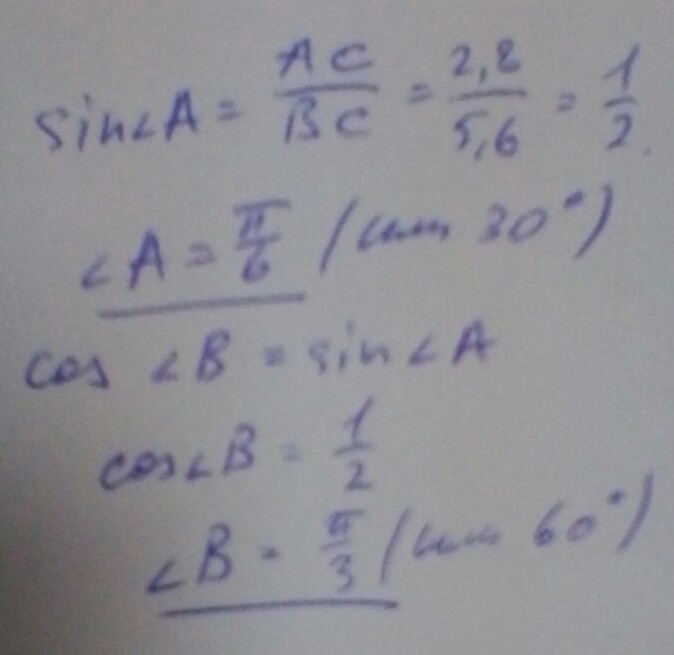 sin∠A = AC/BC = 2,8/5,6 = 1/2.
∠A = π/6 (или 30°)
cos ∠B = sin∠A
cos∠B = 1/2
∠B = π/3 (или 60°)